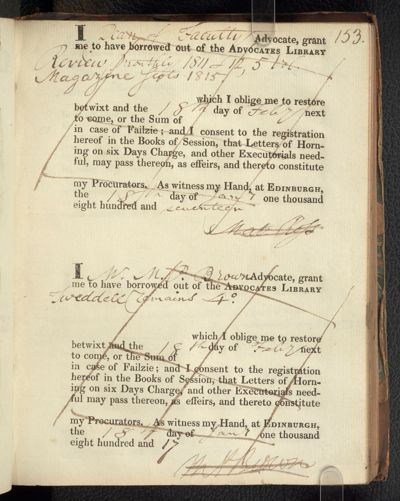 153.
I Dean of Faculty Advocate, grant
me to have borrowed out of the ADVOCATES LIBRARY
Review Monthly 1811 - 14, 5 Vol.
Magazine Scots 1815
which I oblige me to restore
betwixt and the 18th day of Feby next
to come, or the Sum of
in case of Failzie; and I consent to the registration
hereof in the Books of Session, that Letters of Horn-
ing on six Days Charge, and other Executorials need-
ful, may pass thereon, as effeirs, and thereto constitute
my Procurators. As witness my Hand, at EDINBURGH,
the 18th day of Jany one thousand
eight hundred and seventeen
I W. M. P. Brown Advocate, grant
me to have borrowed out of the ADVOCATES LIBRARY
Tweddell Remains 4o
which I oblige me to restore
betwixt and the 18th day of Feby next
to come, or the Sum of
in case of Failzie; and I consent to the registration
hereof in the Books of Session, that Letters of Horn-
ing on six Days Charge, and other Executorials need-
ful may pass thereon, as effeirs, and thereto constitute
my Procurators. As witness my Hand, at EDINBURGH,
the 18th day of Jany one thousand
eight hundred and 17
M P Brown